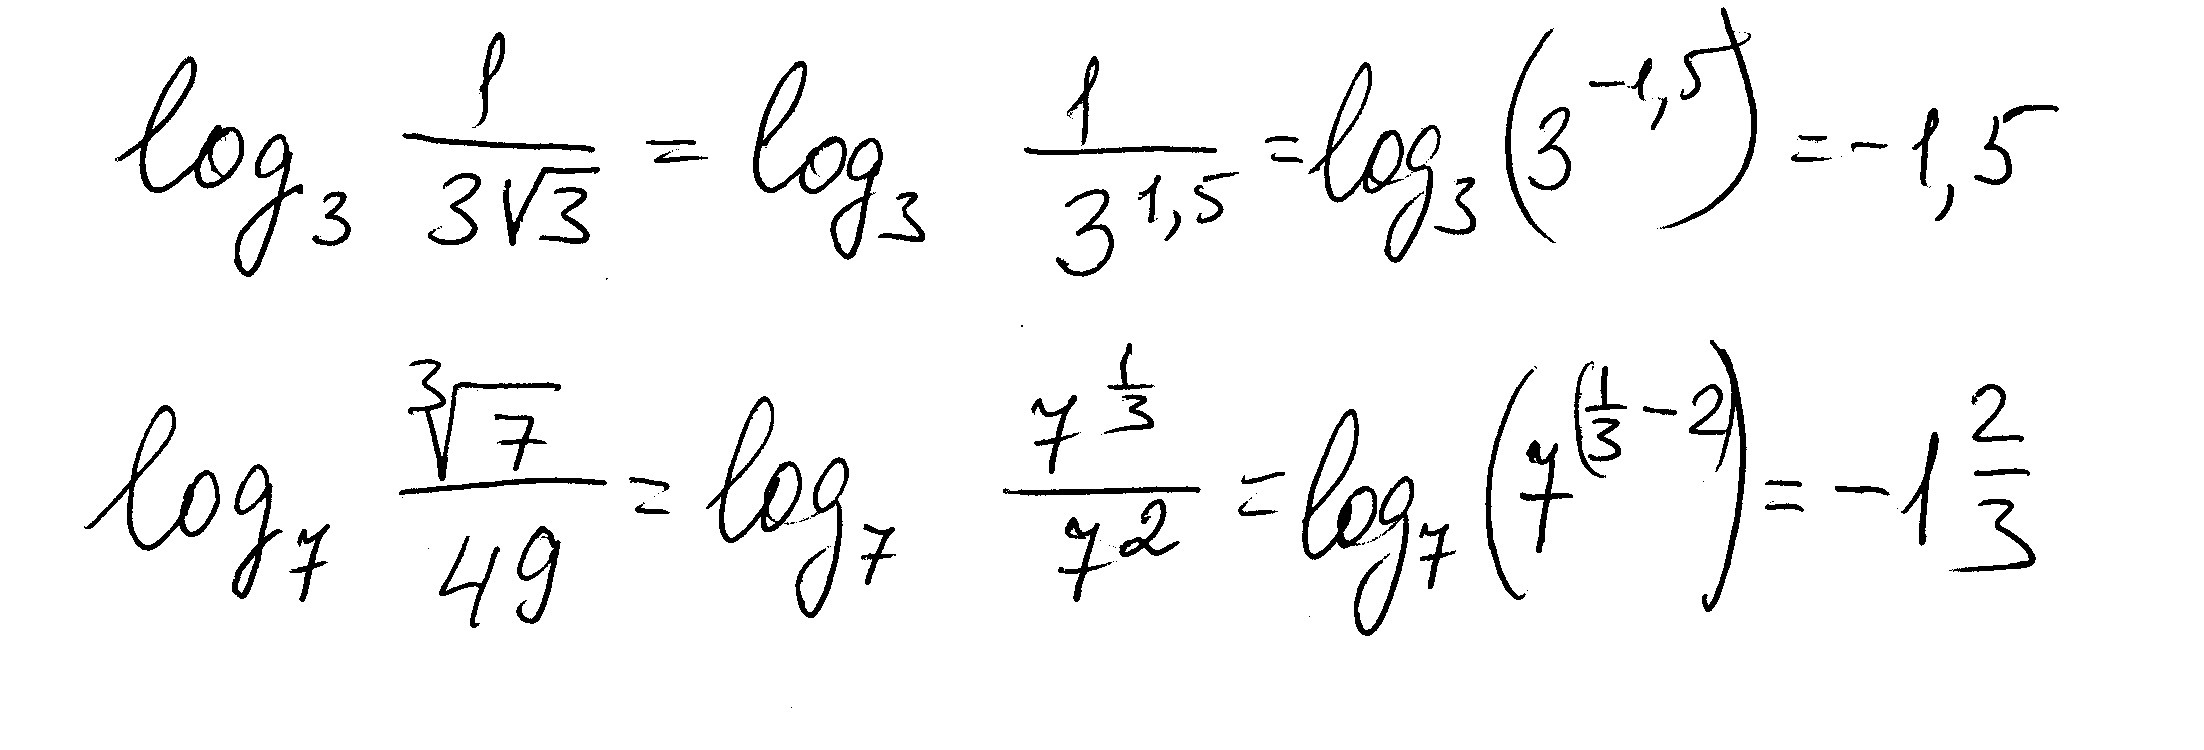 log₃ 1/(3√3) = log₃ 1/3^(1,5) = log₃(3^(-1,5)) = -1,5
log₇ ∛7/49 = log₇ 7^(1/3)/7² = log₇(7^(1/3 - 2)) = -1 2/3